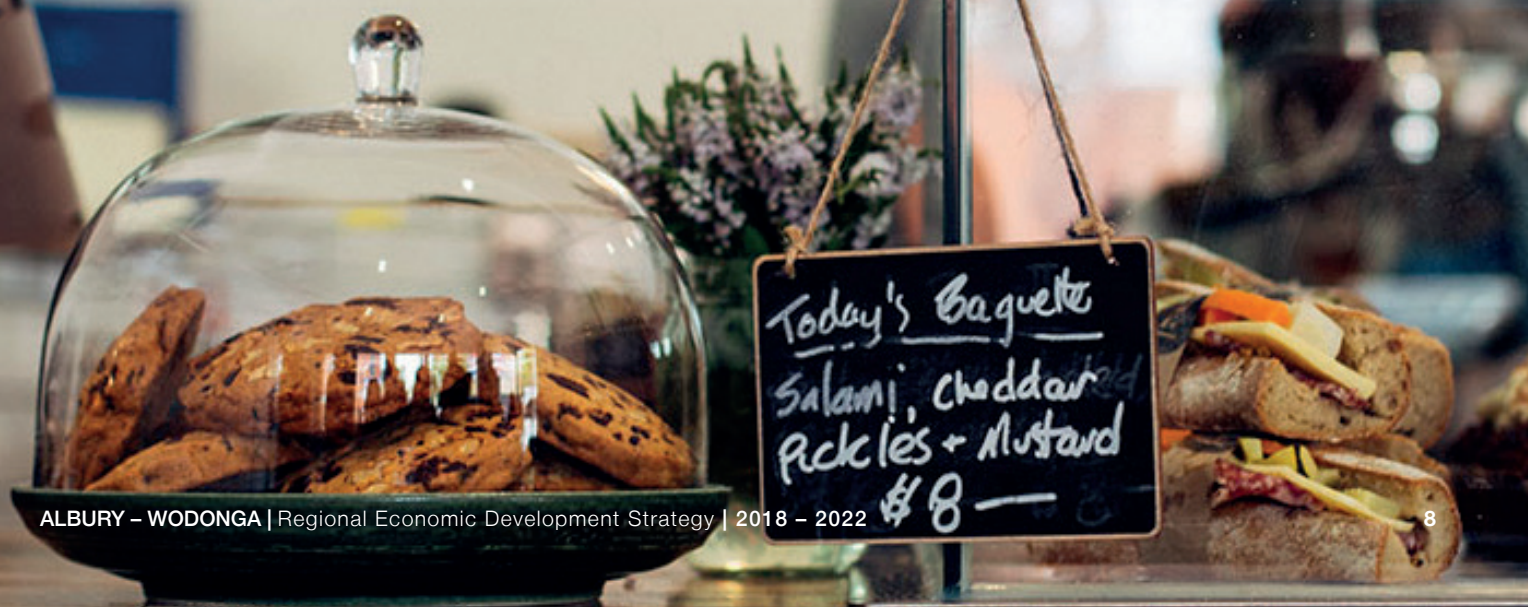 Today's Baguette
Salami, Cheddar
Pickles + Mustard
$8—
ALBURY – WODONGA | Regional Economic Development Strategy | 2018 – 2022
8